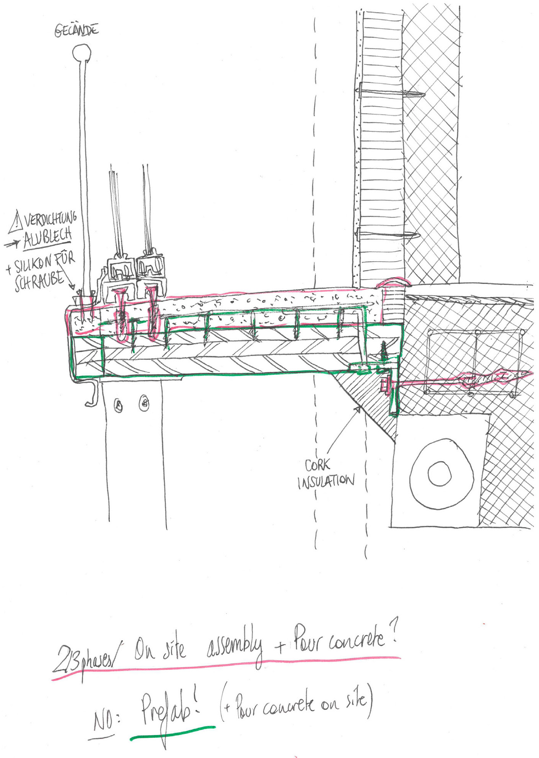 GELÄNDE
⚠ VERDICHTUNG
→ ALUBLECH
+ SILIKON FÜR
SCHRAUBE
CORK
INSULATION
2/3 phases/ On site assembly + Pour concrete?
NO: Prefab! (+ Pour concrete on site)